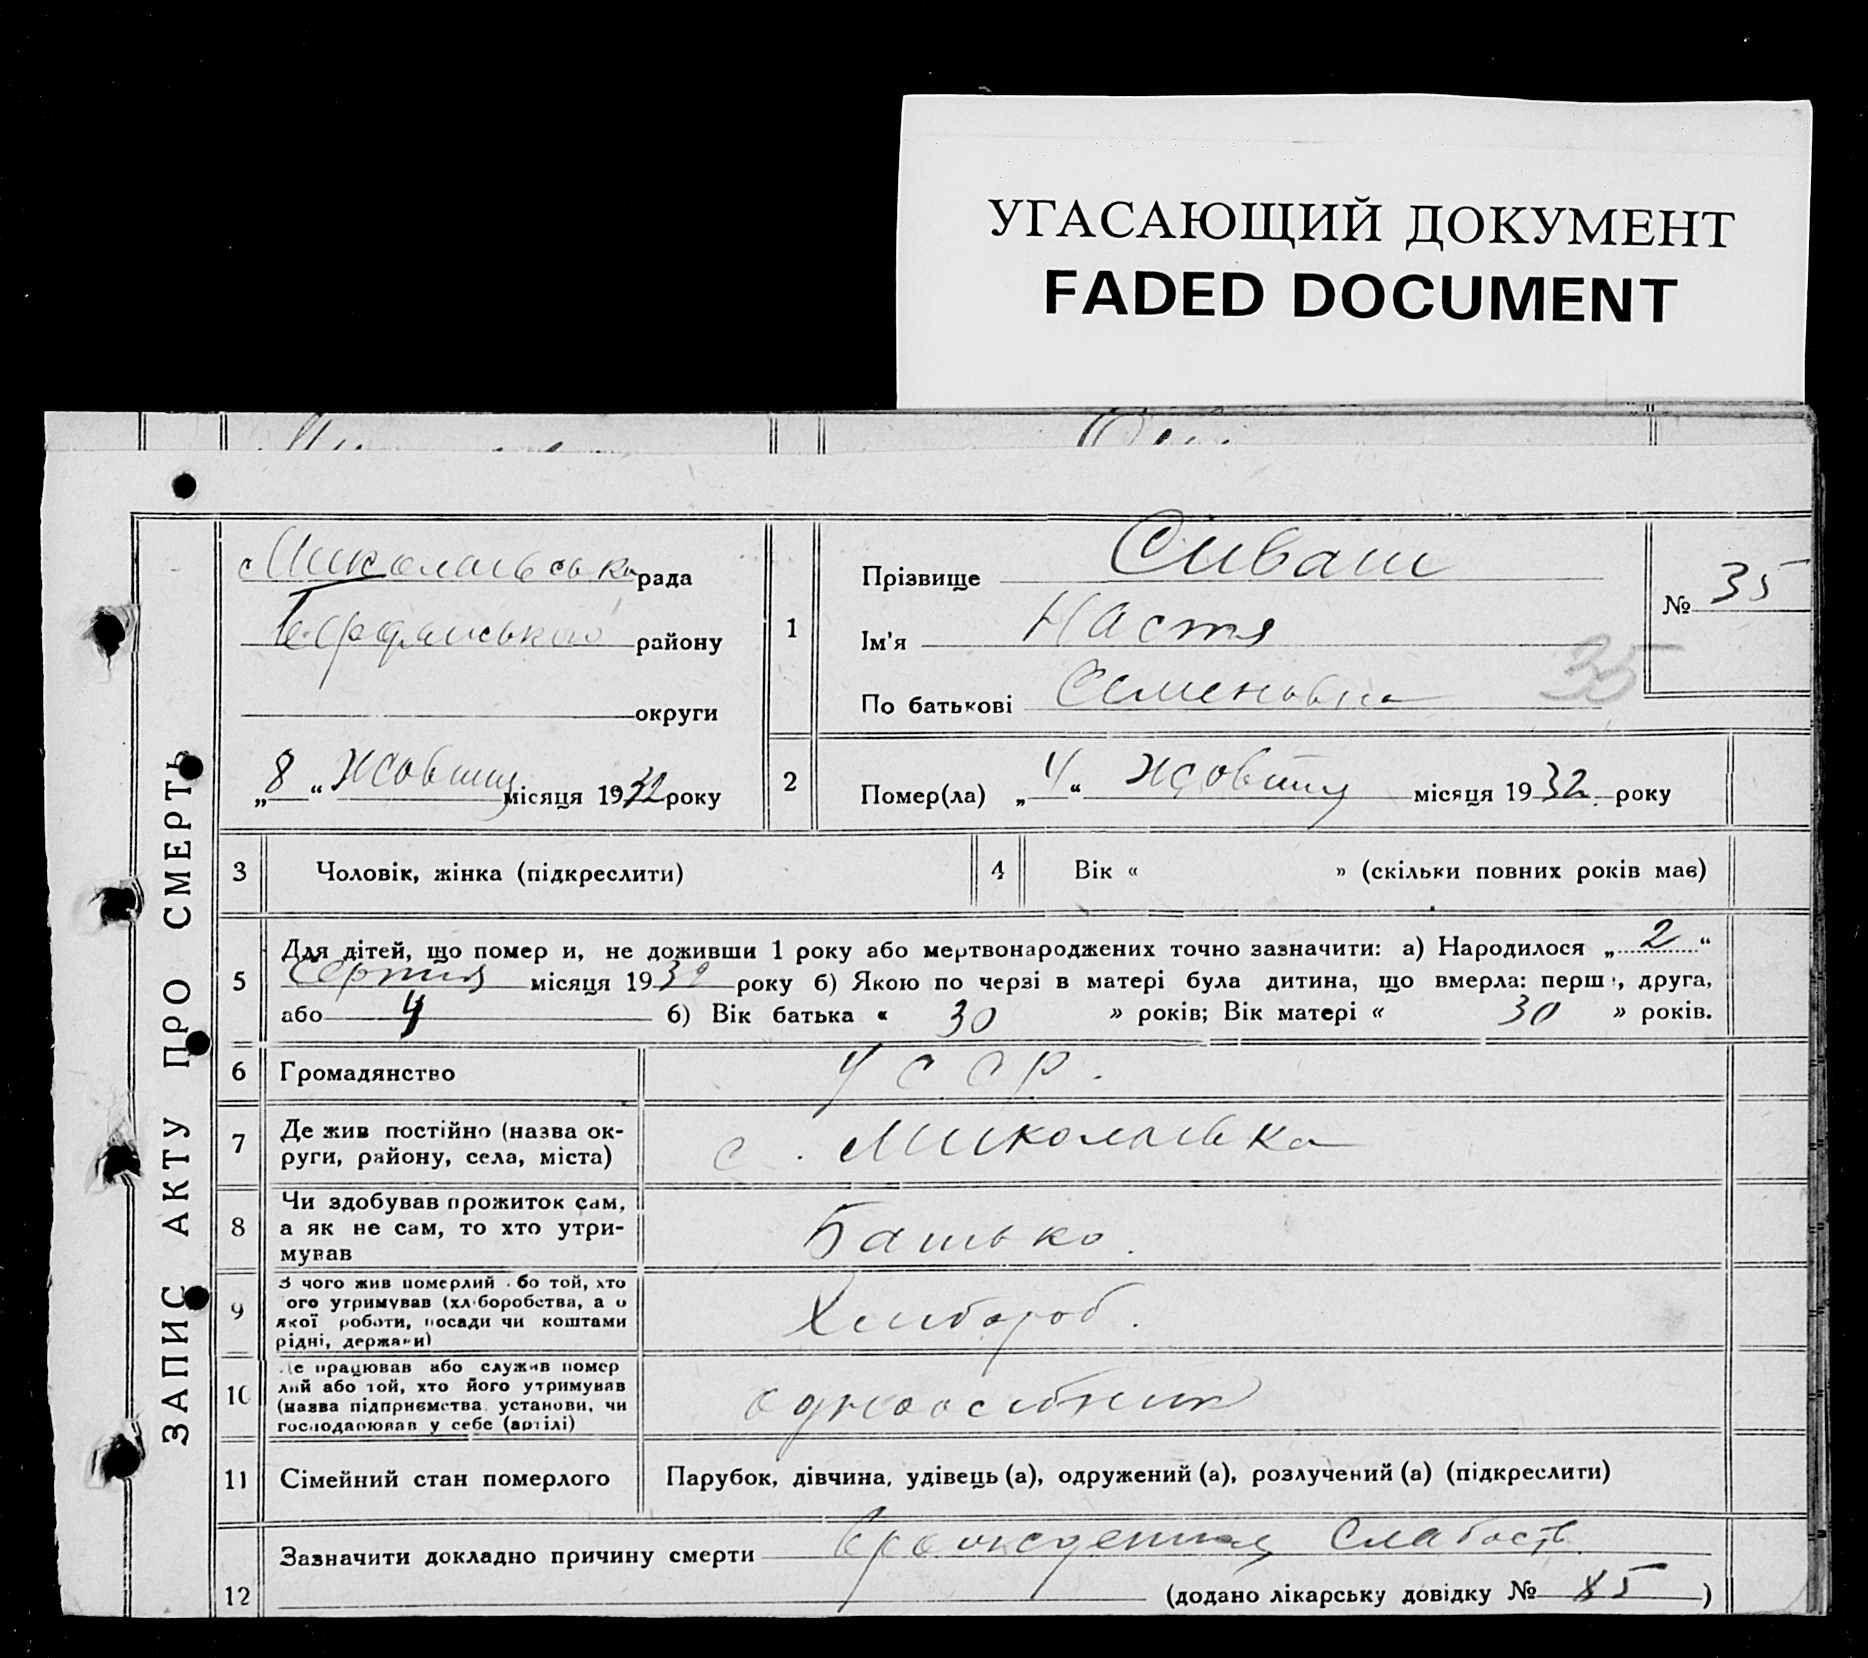 УГАСАЮЩИЙ ДОКУМЕНТ
FADED DOCUMENT
ЗАПИС АКТУ ПРО СМЕРТЬ
Миколаївська рада
Бердянського району
округи
„8“ Жовтня місяця 1932 року
1
Прізвище Сиваш
Ім'я Настя
По батькові Семеновна
№ 35
35
2
Помер(ла) „4“ жовтня місяця 1932 року
3 Чоловік, жінка (підкреслити)
4 Вік « » (скільки повних років має)
5
Для дітей, що помер и, не доживши 1 року або мертвонароджених точно зазначити: а) Народилося „2“
Серпня місяця 1932 року б) Якою по черзі в матері була дитина, що вмерла: перш, друга,
або 4 б) Вік батька « 30 » років; Вік матері « 30 » років.
6 Громадянство УССР.
7 Де жив постійно (назва ок-
руги, району, села, міста)
с. Миколаївка
8 Чи здобував прожиток сам,
а як не сам, то хто утри-
мував
Батько.
9 З чого жив померлий бо той, хто
ого утримував (хл боробства, а о
якої роботи, посади чи коштами
рідні, держави)
Хлибороб.
10 Де працював або служив помер
лий або той, хто його утримував
(назва підприємства, установи, чи
господарював у себе (артілі)
одноосибник
11 Сімейний стан померлого Парубок, дівчина, удівець (а), одружений (а), розлучений (а) (підкреслити)
12
Зазначити докладно причину смерти врожденная слабость
(додано лікарську довідку № 85)